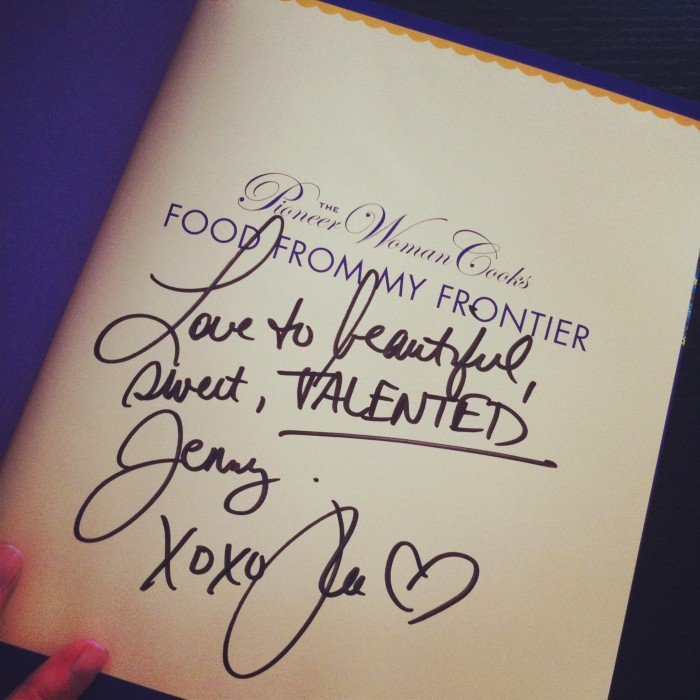 THE
Pioneer Woman Cooks
FOOD FROM MY FRONTIER
Love to beautiful,
sweet, TALENTED
Jenny.
XOXO Ree